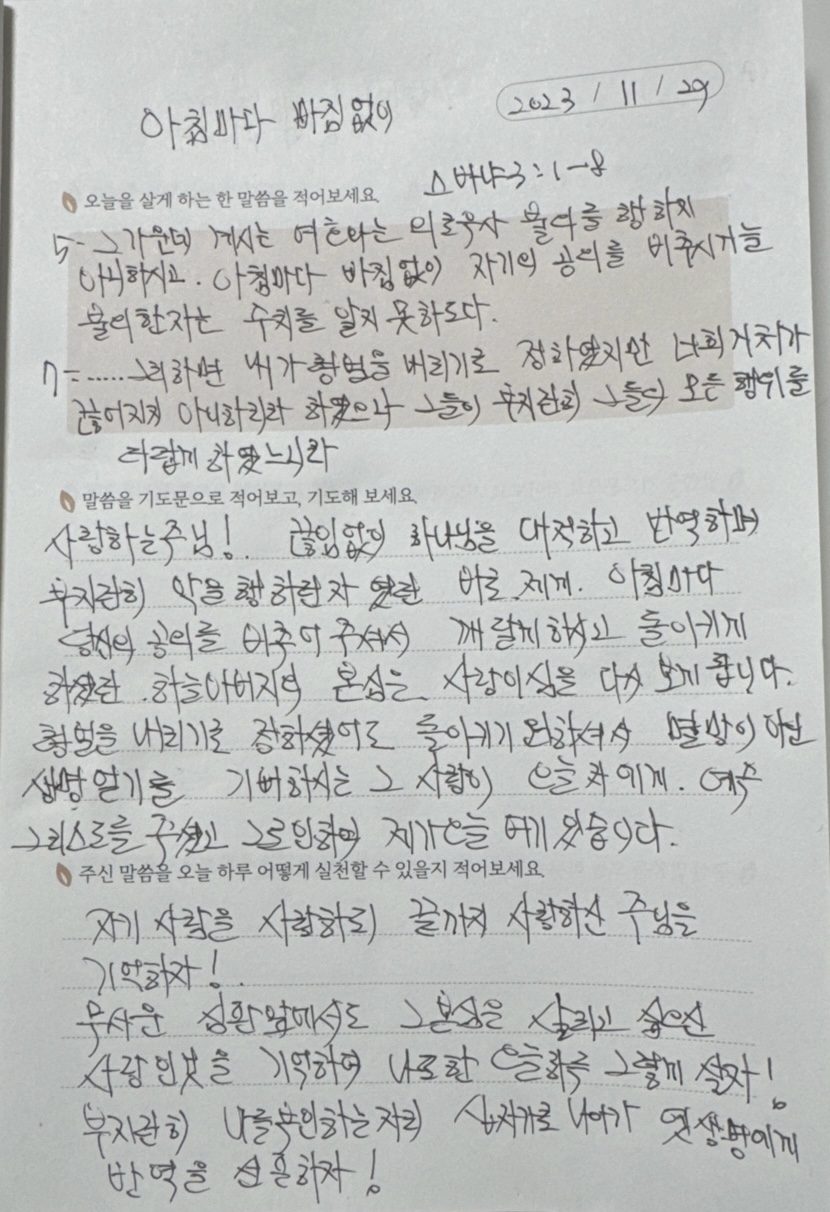 아침마다 빠짐없이
2023 / 11 / 29
스바냐 3:1-8
오늘을 살게 하는 한 말씀을 적어보세요.
5- 그 가운데 계시는 여호와는 의로우사 불의를 행하지
아니하시고. 아침마다 빠짐없이 자기의 공의를 비추시거늘
불의한자는 수치를 알지 못하도다.
7-......그리하면 내가 형벌을 내리기로 정하였지만 너희 거처가
끊어지지 아니하리라 하였으나 그들이 부지런히 그들의 모든 행위를
더럽게 하였느니라
말씀을 기도문으로 적어보고, 기도해 보세요.
사랑하는 주님! 끊임없이 하나님을 대적하고 반역하며
부지런히 악을 행하던 자 였던 바로 제게. 아침마다
당신의 공의를 비추어 주셔서 깨닫게 하시고 돌이키게
하셨던 하늘아버지의 본심은 사랑이심을 다시 보게 됩니다.
형벌을 내리기로 정하셨어도 돌이키기 원하셔서 멸망이 아닌
생명 얻기를 기뻐하시는 그 사랑이 오늘 저에게. 예수
그리스도를 주셨고 그로인하여 제가 오늘 여기 있습니다.
주신 말씀을 오늘 하루 어떻게 실천할 수 있을지 적어보세요.
자기 사람을 사랑하되 끝까지 사랑하신 주님을
기억하자!
무서운 심판앞에서도 그 본심은 살리고 싶으신
사랑인것을 기억하며 나또한 오늘하루 그렇게 살자!
부지런히 나를 부인하는 자리 십자가로 나아가 옛생명에게
반역을 선포하자!